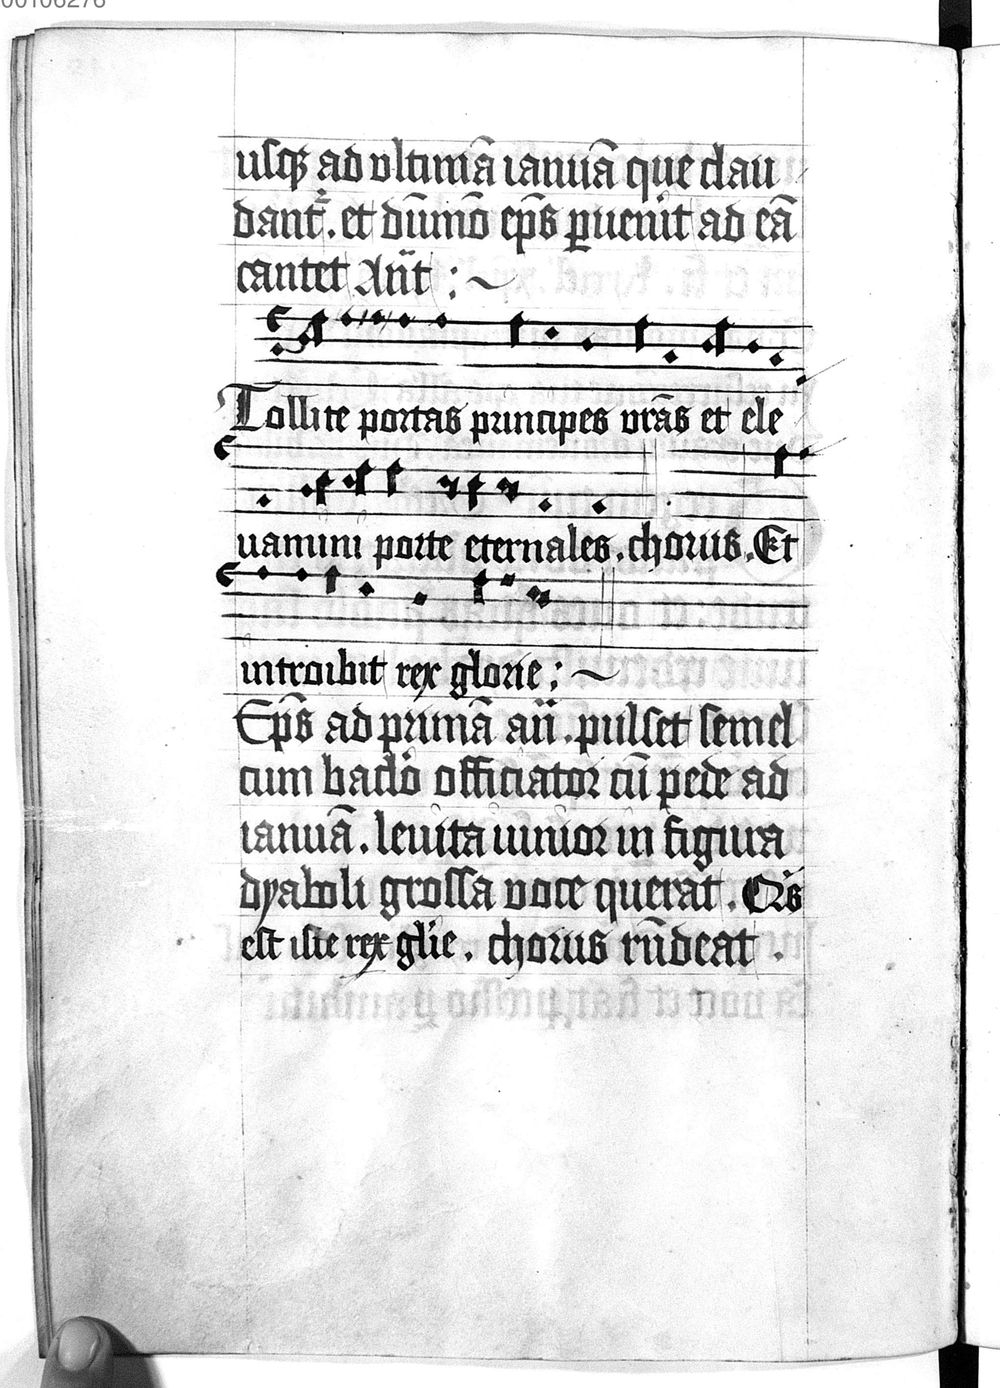 00106276
usq₃ ad vltimā ianuā que clau
dant᷑. et dūmō ep̄s ꝑuen̄it ad eā
cantet An̄t :~
Tollite portas principes vrās et ele
uamini porte eternales. chorus. Et
introibit rex glorie :~
Ep̄s ad primā an̄. pulset semel
cum baclo officiator cū pede ad
ianuā. leuita iunior in figura
dyaboli grossa voce querat. Q̇s
est iste rex glīe. chorus rn̄deat .